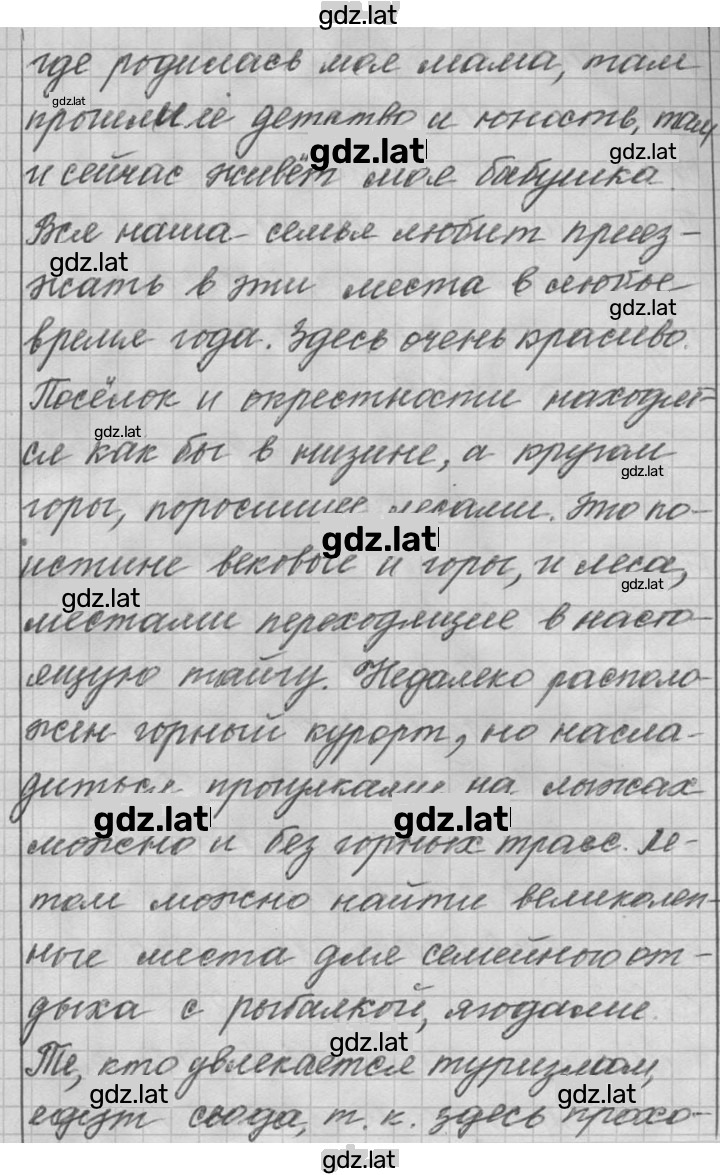 gdz.lat
где родилась моя мама, там
gdz.lat
прошли её детство и юность, там
gdz.lat
gdz.lat
и сейчас живёт моя бабушка.
Вся наша семья любит приез-
gdz.lat
жать в эти места в любое
gdz.lat
время года. Здесь очень красиво.
Посёлок и окрестности находят-
gdz.lat
ся как бы в низине, а кругом
gdz.lat
горы, поросшие лесами. Это по-
gdz.lat
истине вековые и горы, и леса,
gdz.lat
gdz.lat
местами переходящие в насто-
ящую тайгу. Недалеко располо-
жен горный курорт, но насла-
диться прогулками на лыжах
gdz.lat
gdz.lat
можно и без горных трасс. Ле-
том можно найти великолеп-
ные места для семейного от-
дыха с рыбалкой, ягодами.
gdz.lat
Те, кто увлекается туризмом,
gdz.lat
gdz.lat
едут сюда, т. к. здесь прохо-
gdz.lat